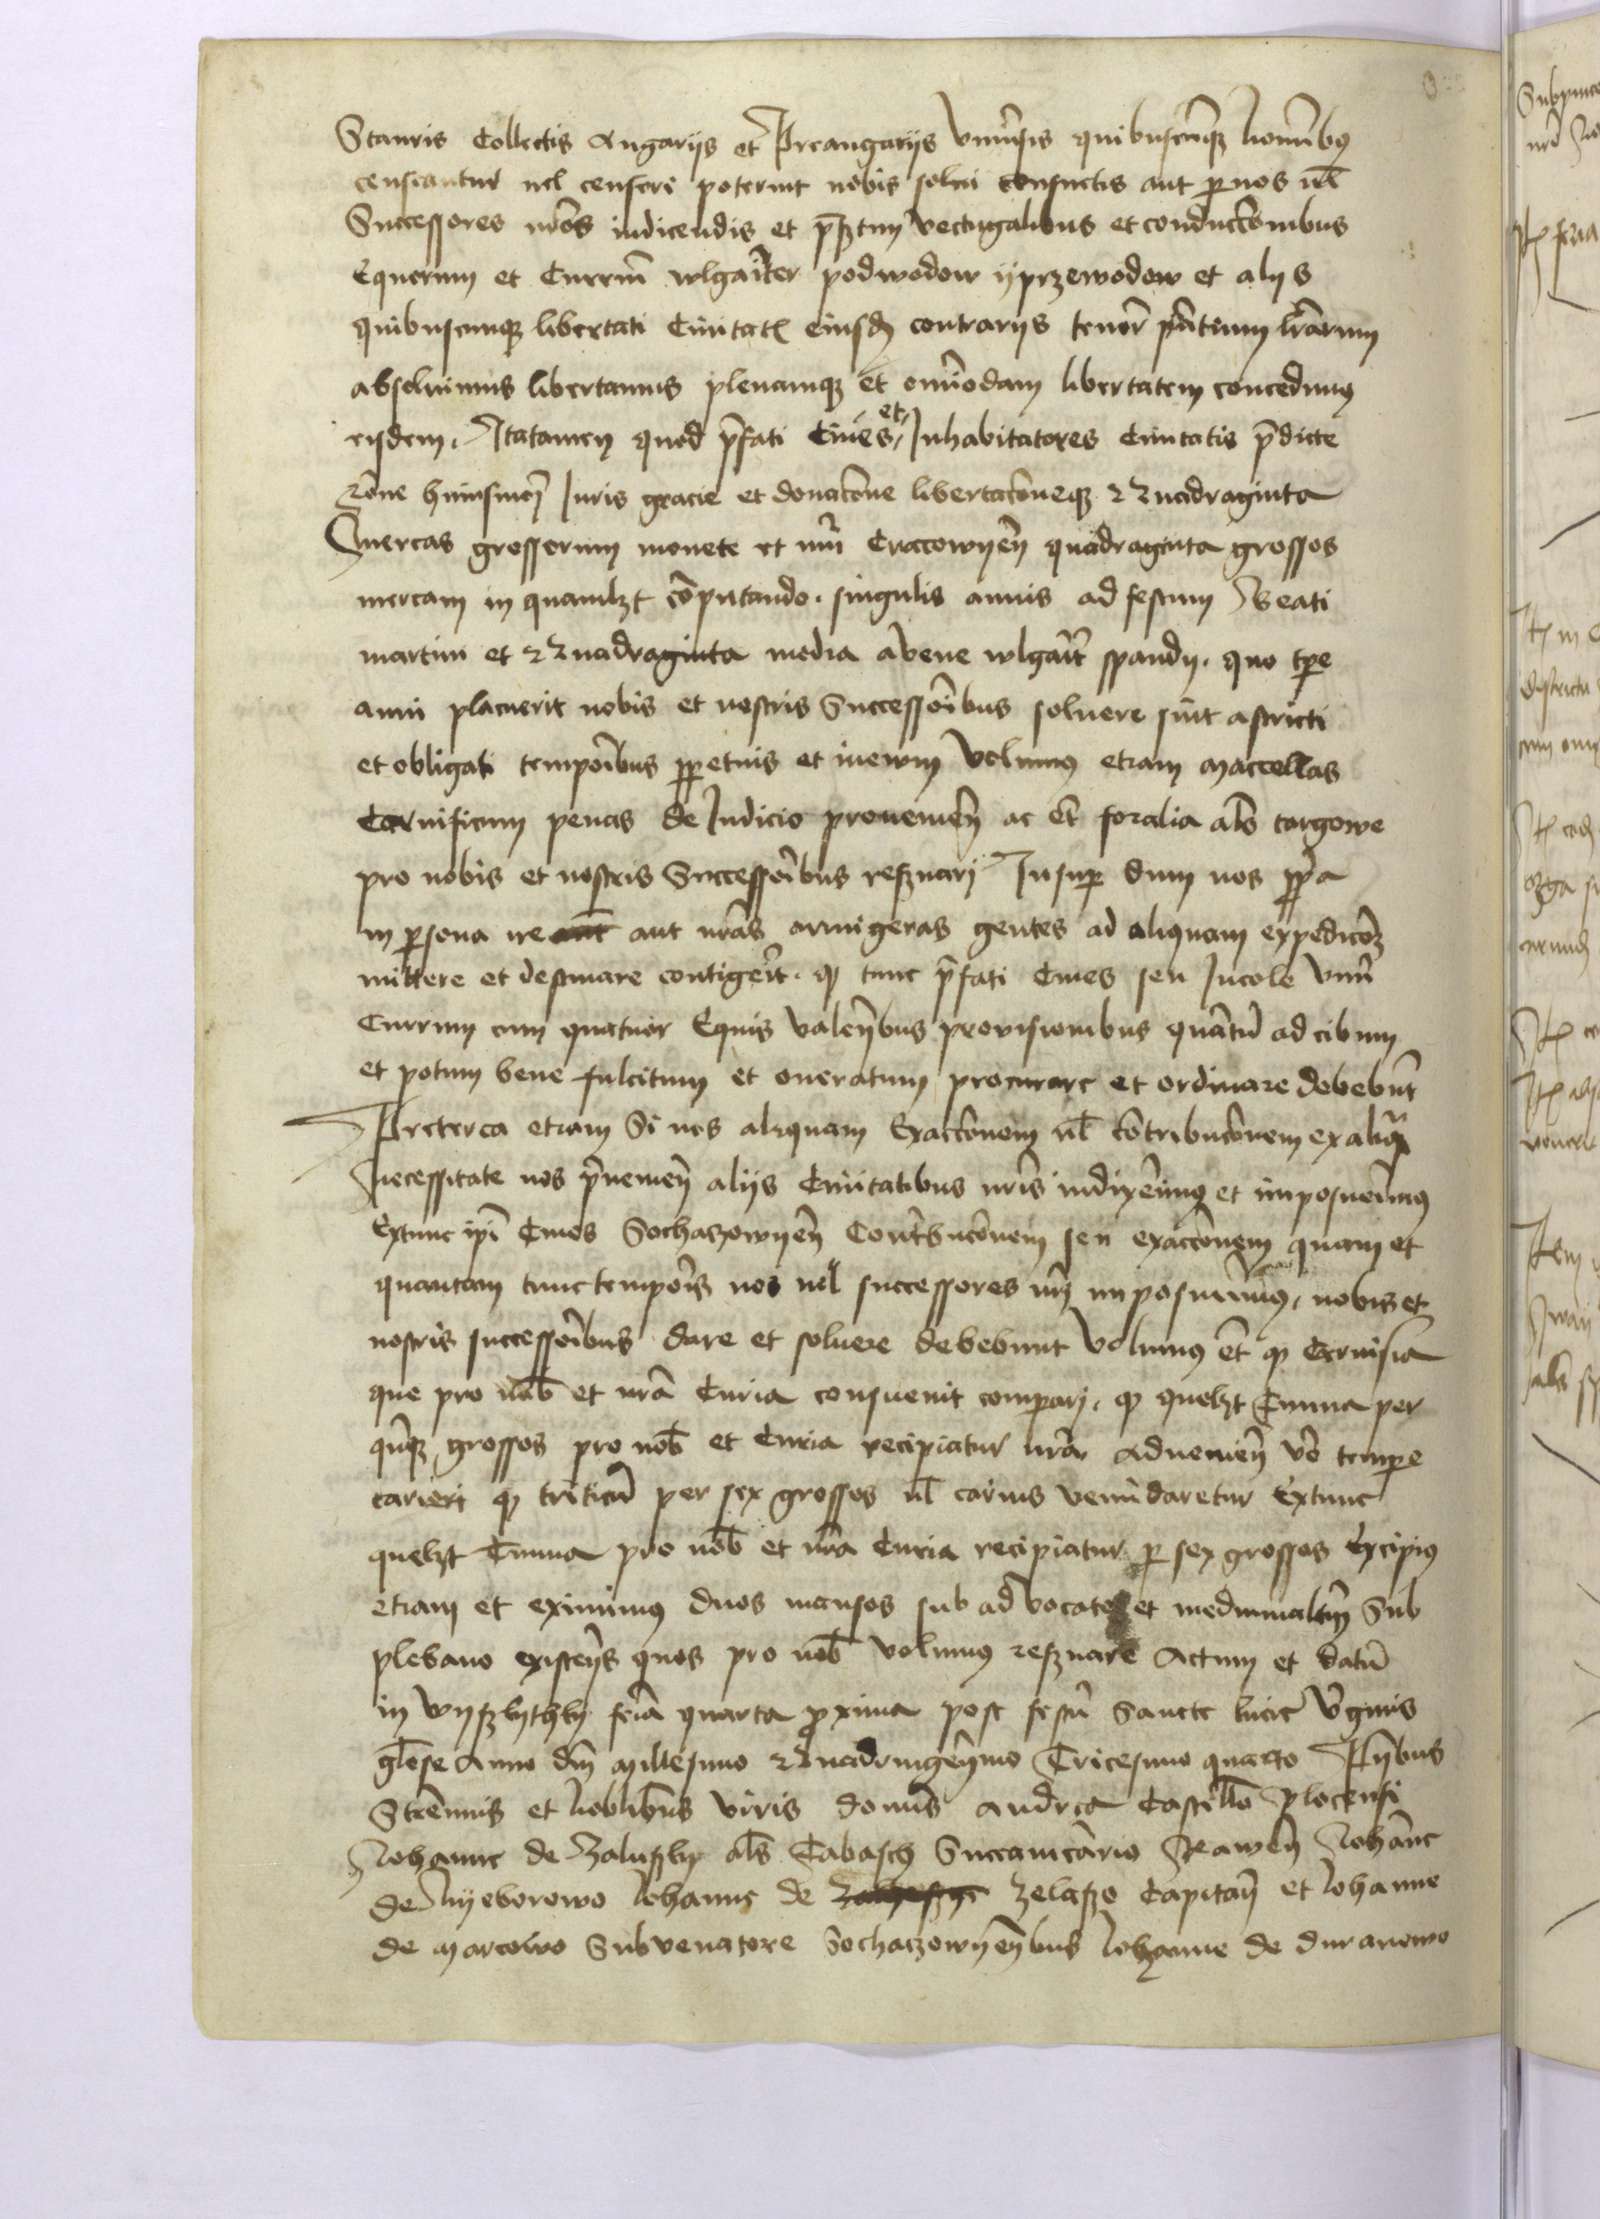 Stanris Collectis Angarijs et Preangarijs vniuersis quibuscunqz nominibus
censeantur uel censeri poterint nobis solui consuetis aut per nos uel
Successores nros indicendis et presertim vectigalibus et conducconibus
Equorum et Curruum wlgariter podwodow y przewodow et alijs
quibuscunqz libertati Ciuitatis eiusdem contrarijs tenore pntium lrarum
absoluimus libertamus plenamqz et omnimodam libertatem concedimus
eisdem. Itatamen quod prefati Ciues et Inhabitatores Ciuitatis predicte
racone huiusmodi Iuris gracie et donacone libertaconeqz Quadraginta
mercas grossorum monete et nuri Cracowyen quadraginta grossos
mercam in quamlibet computando. singulis annis ad festum Beati
martini et Quadraginta media avene wlgariter spandy. quo tpe
anni placuerit nobis et nostris Successoribus soluere sint astricti
et obligati temporibus perpetuis et in ewm Volumus etiam maccellas
Carnificum penas de Iudicio prouenien ac etiam foralia als targowe
pro nobis et nostris Successoribus reseruari Insuper dum nos propria
in persona ire aut nras armigeras gentes ad aliquam expedicoem
mittere et destinare contigerit. quod tunc prefati Ciues seu Incole vnum
Currum cum quatuor Equis valentibus prouisionibus quantum ad cibum
et potum bene fulcitum et oneratum procurare et ordinare debebunt
Preterea etiam Si nos aliquam Exacconem uel contribuconem ex aliqua
Necessitate nos preuenien alijs Ciuitatibus nris indixerimus et imposuerimus
Extunc ipsi Ciues Sochaczowyen Contribuconem seu exacconem quam et
quantam tunc temporis nos uel successores nri imposuerimus, nobis et
nostris successoribus dare et soluere debebunt Volumus etiam quod Ceruisia
que pro nobis et nra Curia consueuit comparari, quod quelibet Tunna per
quinqz grossos pro nobis et Curia recipiatur nra Aduenien vero tempore
carieri quod triticum per sex grossos uel carius venundaretur Extunc
quelibet Tunna pro nobis et nra Curia recipiatur per sex grossos Excipimus
etiam et eximimus duos mansos sub aduocato et medium altum Sub
plebano existens quos pro nobis Volumus reseruare Actum et datum
in Wyszlythky feria quarta proxima post festum Sancte lucie virginis
gloriose Anno dni Millesimo Quadringentesimo Tricesimo quarto Presentibus
Strennuis et Nobilibus viris dominis Andrea Castellano Plocensi
Iohanne de Zaluszky als Tabasch Succamerario Rawen Iohanne
de Nyeborowo Iohanne de Zelaszo Capitan et Iohanne
de Marcowo Subvenatore Sochaczowyenbus Iohanne de duranowo